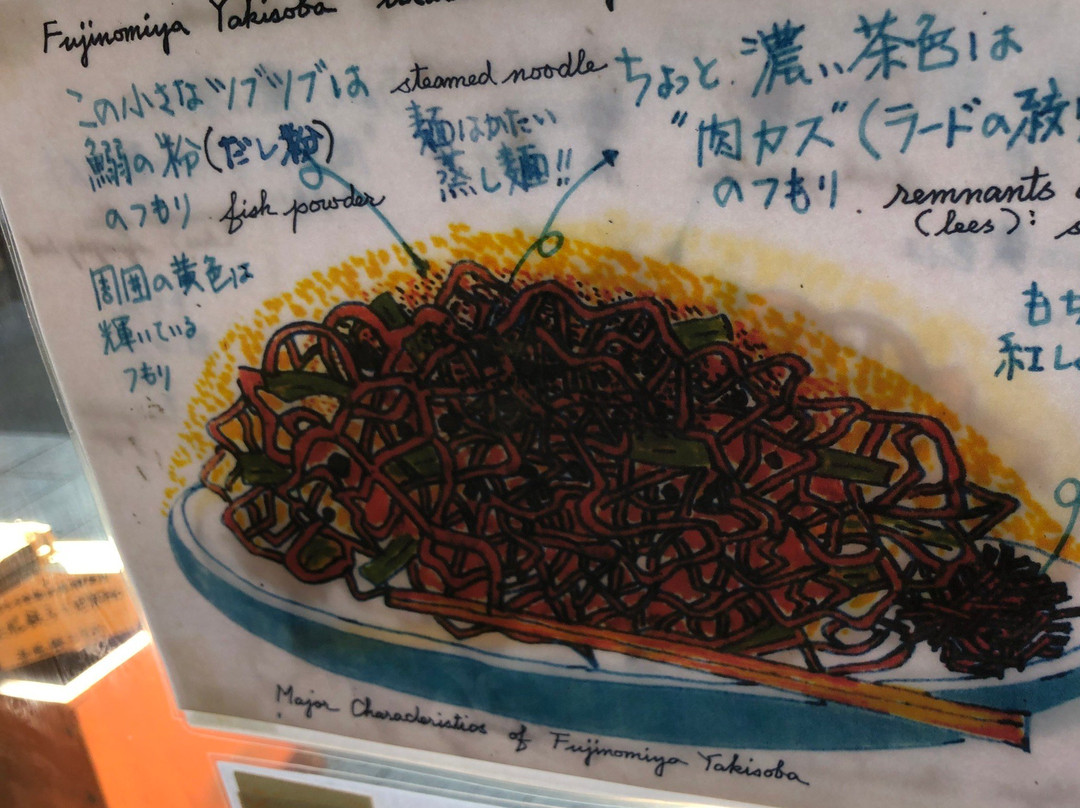 Fujinomiya Yakisoba
この小さなツブツブは
鰯の粉(だし粉)
のつもり fish powder
周囲の黄色は
輝いている
つもり
steamed noodle
麺はかたい
蒸し麺!!
ちょっと濃い茶色は
"肉カス"(ラードの
のつもり. remnants
(lees):
もち
紅し
Major Characteristics of Fujinomiya Yakisoba